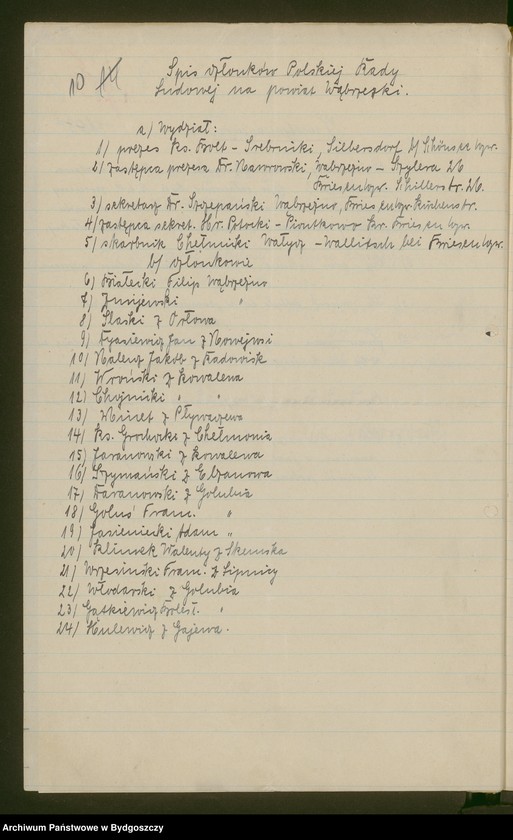 10
Spis członków Polskiej Rady
Ludowej na powiat Wąbrzeski.
a/ Wydział:
1/ prezes ks. Bolt - Srebniki, Silbersdorf b/ Schönsee wpr.
2/ zastępca prezesa Dr. Nawrowski, Wąbrzeźno - Szylera 26
Briesen wpr. Schillerstr. 26.
3/ sekretarz Dr. Szczepański Wąbrzeźno, Briesen wpr.
4/ zastępca sekret. Hr. Płocki - Piontkowo kr. Briesen wpr.
5/ skarbnik Chełmicki Wałycz - Wallitsch bei Briesen wpr.
b/ członkowie
6/ Białecki Filip Wąbrzeźno
7/ Żmijewski "
8/ Slaski z Orłowa
9/ Łysiewicz Jan z Nowejwsi
10/ Nalenz Jakób z Radowisk
11/ Wroński z Kowalewa
12/ Chojnicki " "
13/ z Pływaczewa
14/ ks. Grochocki z Chełmonia
15/ Jaranowski z Kowalewa
16/ Szymański z Elzanowa
17/ Daranowski z Golubia
18/ Goluś Fran. "
19/ Jasieniecki Adam "
20/ Klimek Walenty z Skemska
21/ Wrzesiński Fran. z Lipnicy
22/ Włodarski z Golubia
23/ Gątkiewicz Bolesł. "
24/ Hulewicz z Gajewa.
Archiwum Państwowe w Bydgoszczy